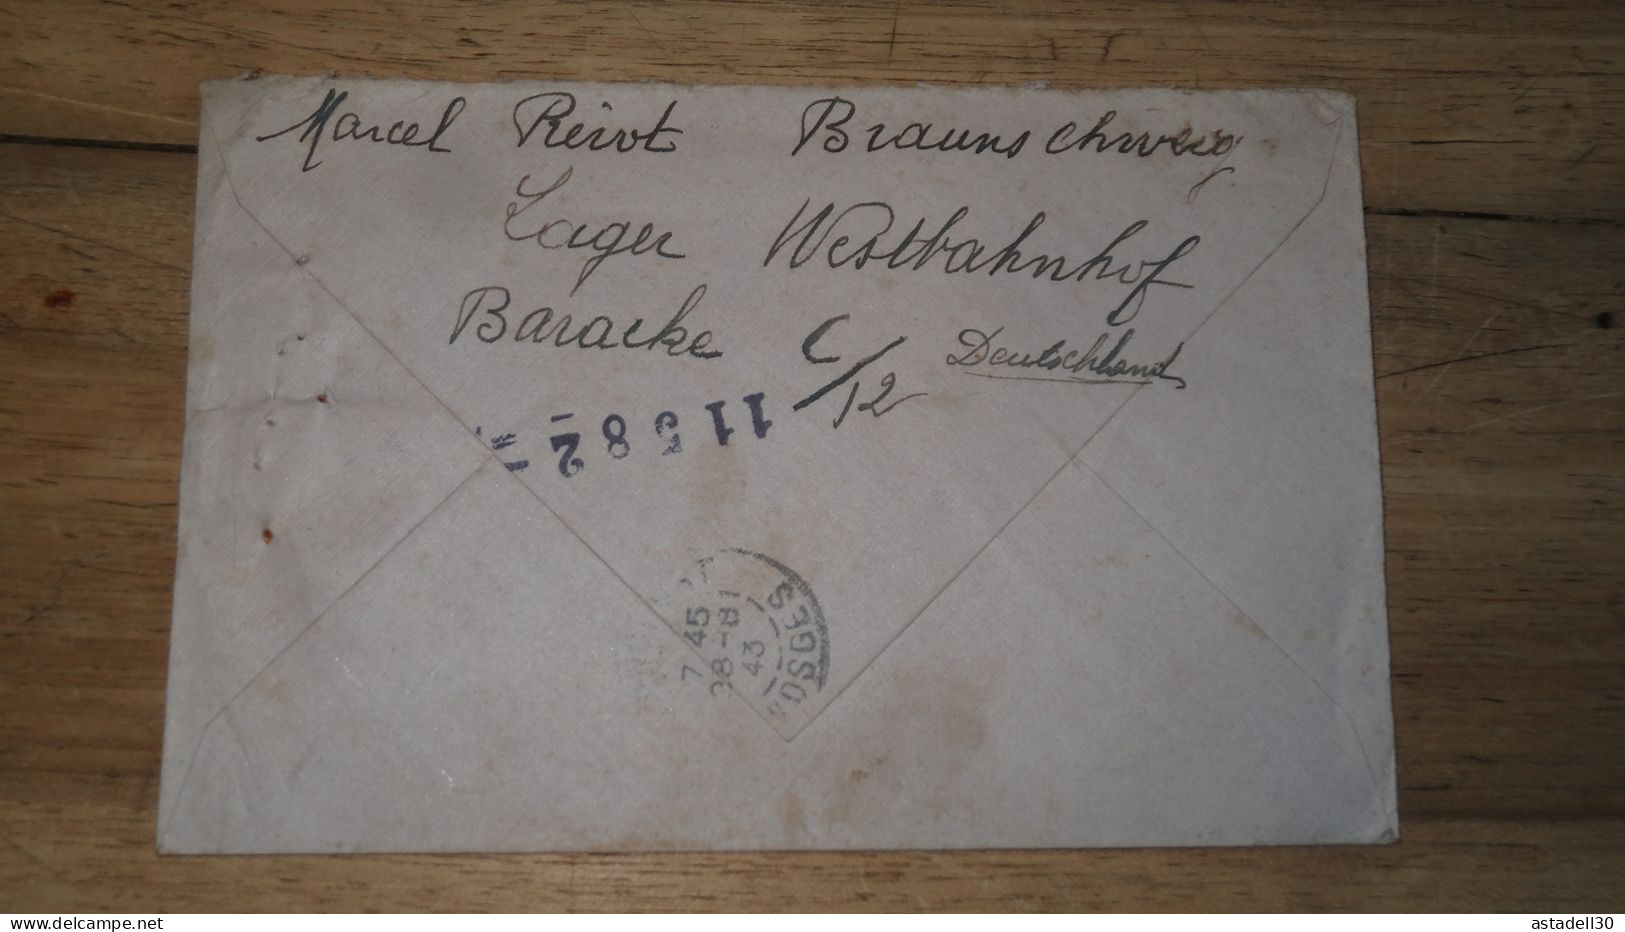 Marcel Reirot Braunschweig
Lager Westbahnhof
Baracke C/12 Deutschland
11582
7 45
28-8
43
VOSGES
www.delcampe.net
astadell30